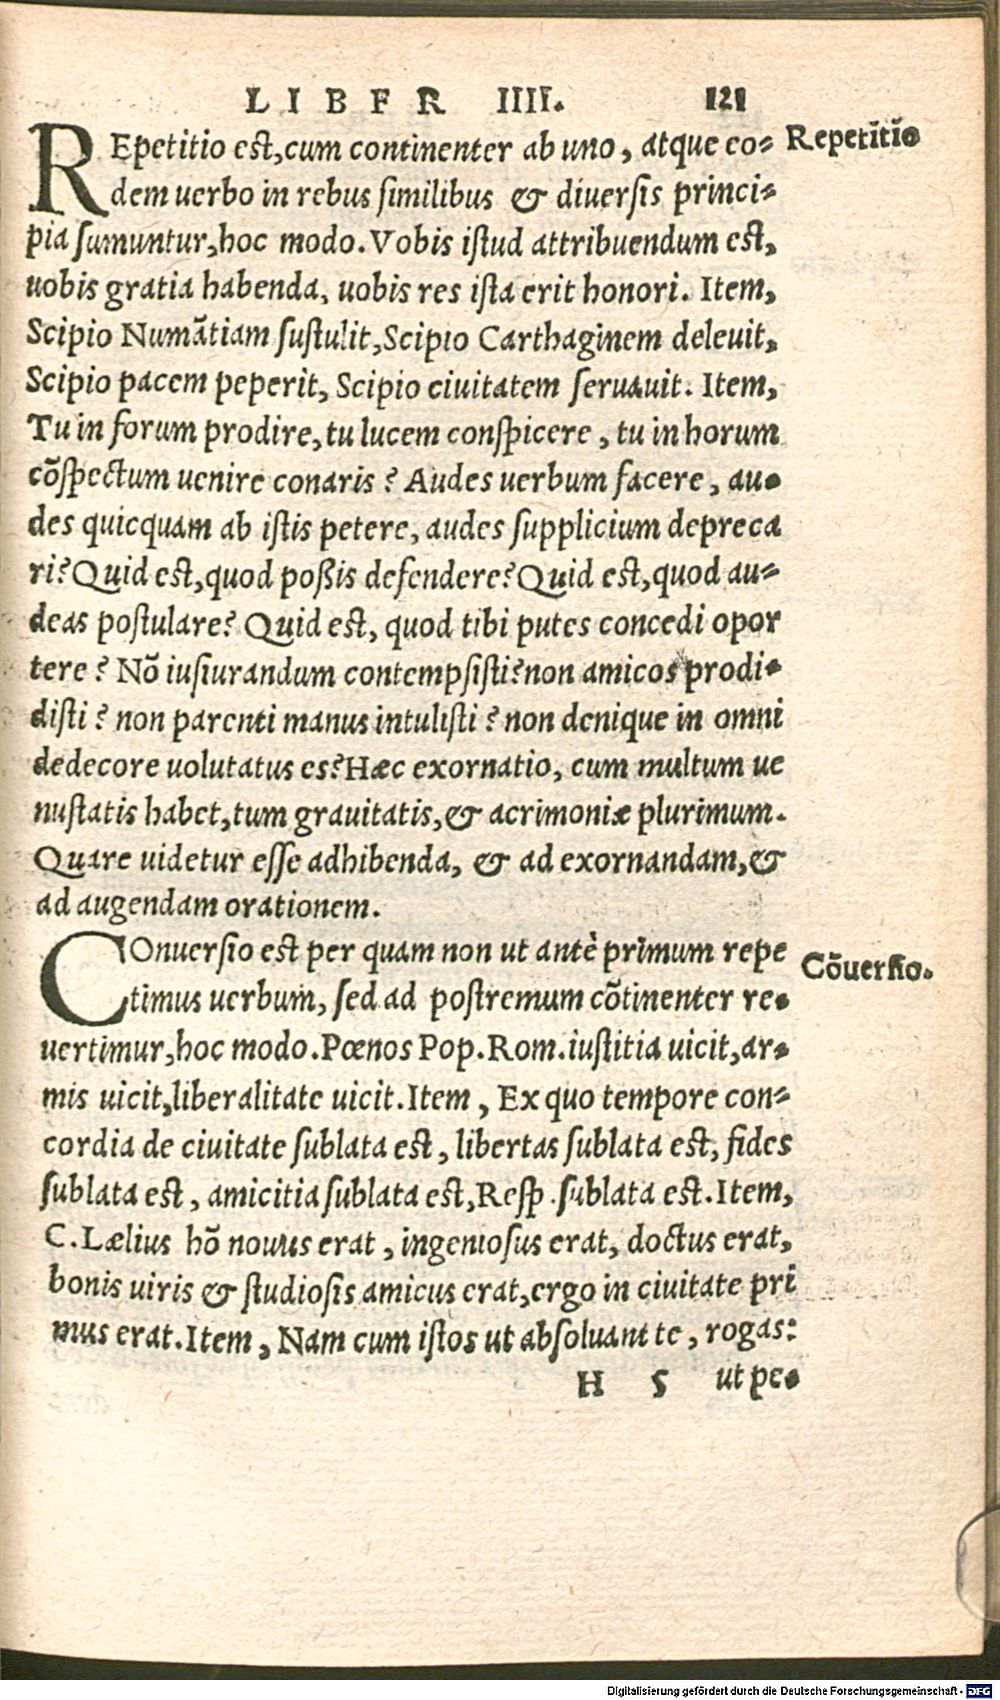 LIBER IIII. 121
REpetitio est, cum continenter ab uno, atque eo- Repetĩtio
dem uerbo in rebus similibus & diuersis princi-
pia sumuntur, hoc modo. Vobis istud attribuendum est,
uobis gratia habenda, uobis res ista erit honori. Item,
Scipio Numãtiam sustulit, Scipio Carthaginem deleuit,
Scipio pacem peperit, Scipio ciuitatem seruauit. Item,
Tu in forum prodire, tu lucem conspicere, tu in horum
cõspectum uenire conaris? Audes uerbum facere, au-
des quicquam ab istis petere, audes supplicium depreca
ri? Quid est, quod poßis defendere? Quid est, quod au-
deas postulare? Quid est, quod tibi putes concedi opor
tere? Nõ iusiurandum contempsisti? non amicos prodi-
disti? non parenti manus intulisti? non denique in omni
dedecore uolutatus es? Hæc exornatio, cum multum ue
nustatis habet, tum grauitatis, & acrimoniæ plurimum.
Quare uidetur esse adhibenda, & ad exornandam, &
ad augendam orationem.
COnuersio est per quam non ut antè primum repe Cõuersio.
timus uerbum, sed ad postremum cõtinenter re-
uertimur, hoc modo. Pœnos Pop. Rom. iustitia uicit, ar-
mis uicit, liberalitate uicit. Item, Ex quo tempore con-
cordia de ciuitate sublata est, libertas sublata est, fides
sublata est, amicitia sublata est, Resp. sublata est. Item,
C. Lælius hõ nouus erat, ingeniosus erat, doctus erat,
bonis uiris & studiosis amicus erat, ergo in ciuitate pri
mus erat. Item, Nam cum istos ut absoluant te, rogas:
H 5 ut pe-
Digitalisierung gefördert durch die Deutsche Forschungsgemeinschaft - DFG